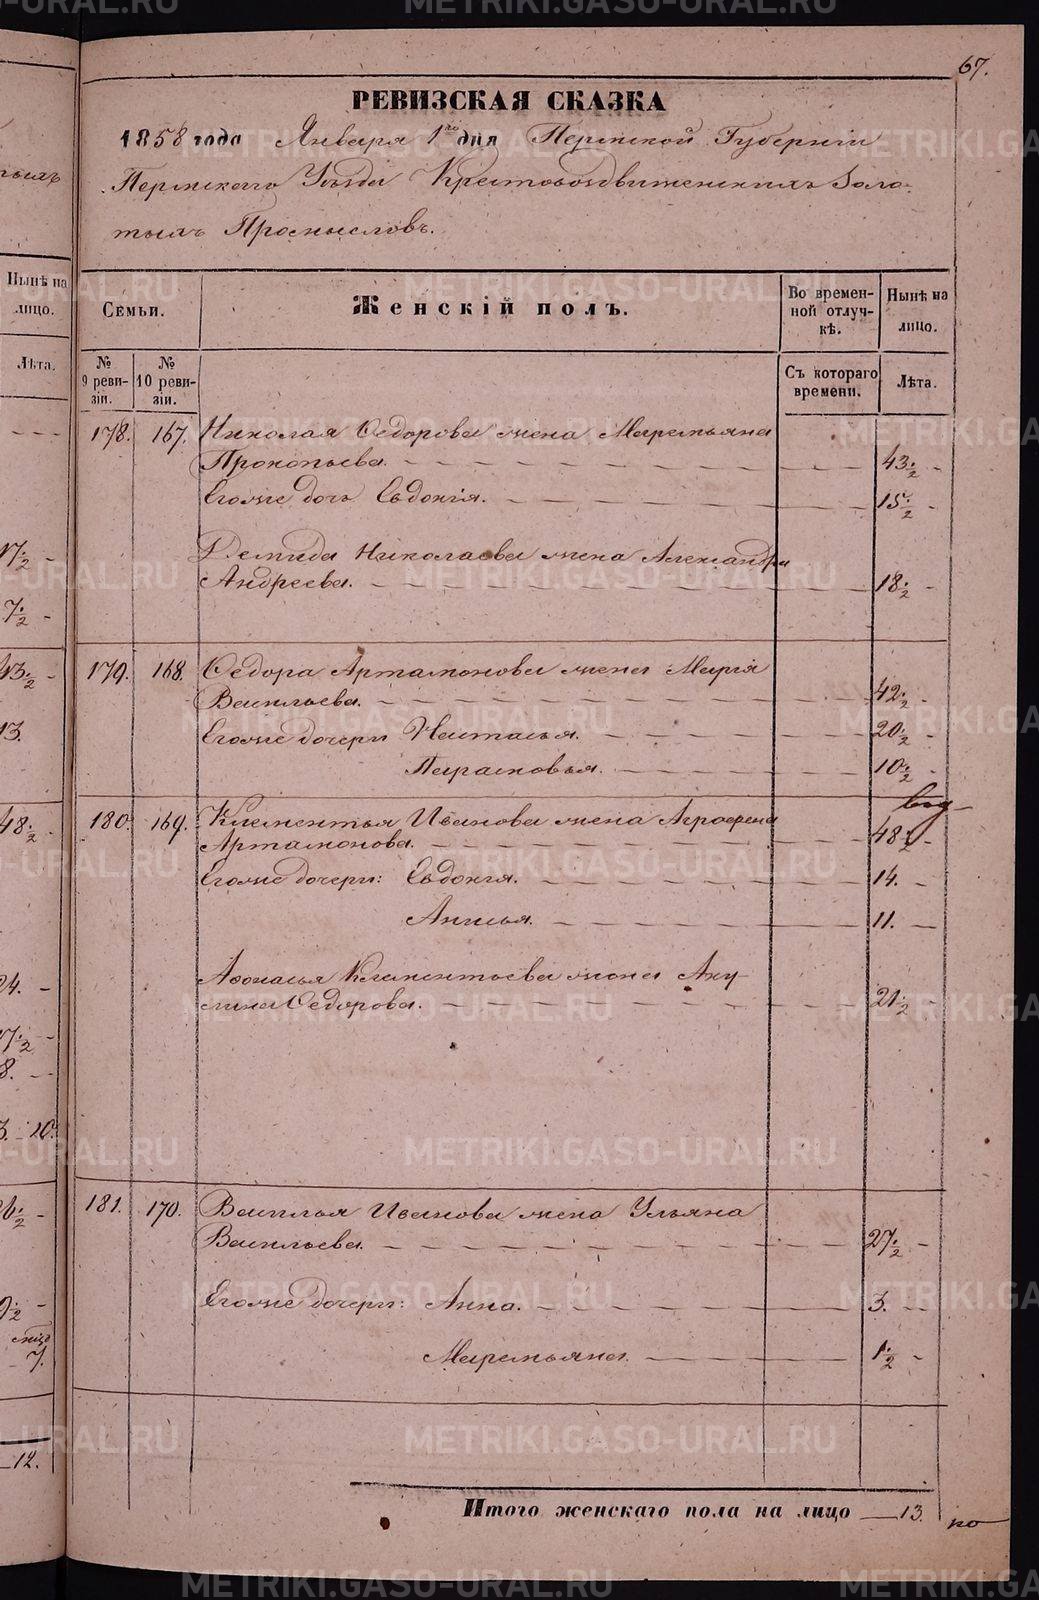 67.
РЕВИЗСКАЯ СКАЗКА
1858 года Января 1го дня Пермской Губернiи
Пермскаго Уѣзда Крестовоздвиженскихъ Золо-
тыхъ Промысловъ.
Нынѣ на лицо.
Лѣта.
Семьи.
Женскiй полъ.
Во временной отлучкѣ.
Нынѣ на лицо.
№ 9 ревизiи.
№ 10 ревизiи.
Съ котораго времени.
Лѣта.
178. 167. Николая Ѳедорова жена Маремьяна
Прокопьева. 43 1/2
Егоже дочь Евдокiя. 15 1/2
Демида Николаева жена Александра
Андреева. 18 1/2
179. 168. Ѳедора Артамонова жена Марiя
Васильева. 42 1/2
Егоже дочери Настасья. 20 1/2
Парасковья. 10 1/2
180. 169. Клементья Иванова жена Аграфена
Артамонова. 48 1/2
Егоже дочери: Евдокiя. 14.
Анисья. 11.
Аѳонасья Клементьева жена Аку-
лина Ѳедорова. 21 1/2
181. 170. Василья Иванова жена Ульяна
Васильева. 27 1/2
Егоже дочери: Анна. 3.
Маремьяна. 1 1/2
Итого женскаго пола на лицо 13.
по
17 1/2
7 1/2
43 1/2
13.
48 1/2
24.
12.
METRIKI.GASO-URAL.RU